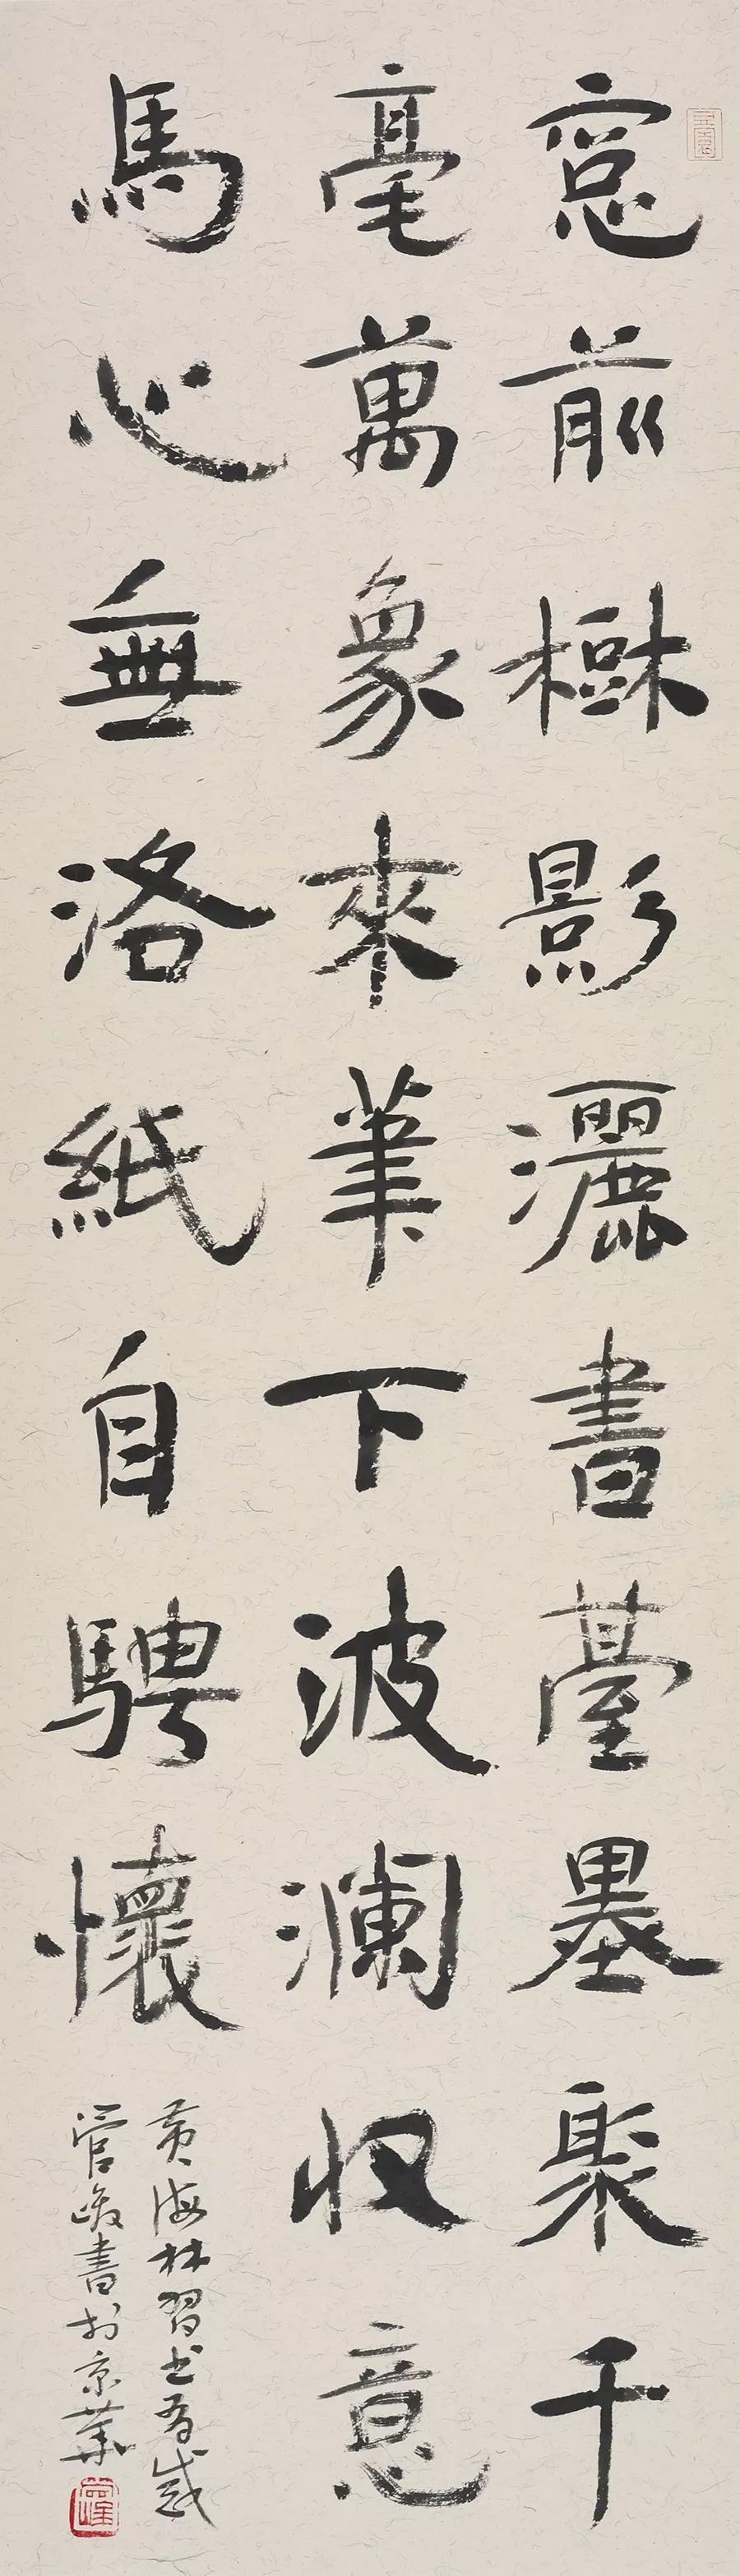 窓前樹影灑書臺墨聚千
毫萬象來筆下波瀾收意
馬心無洛紙自騁懷
黄海林習書有感
管峻書於京華